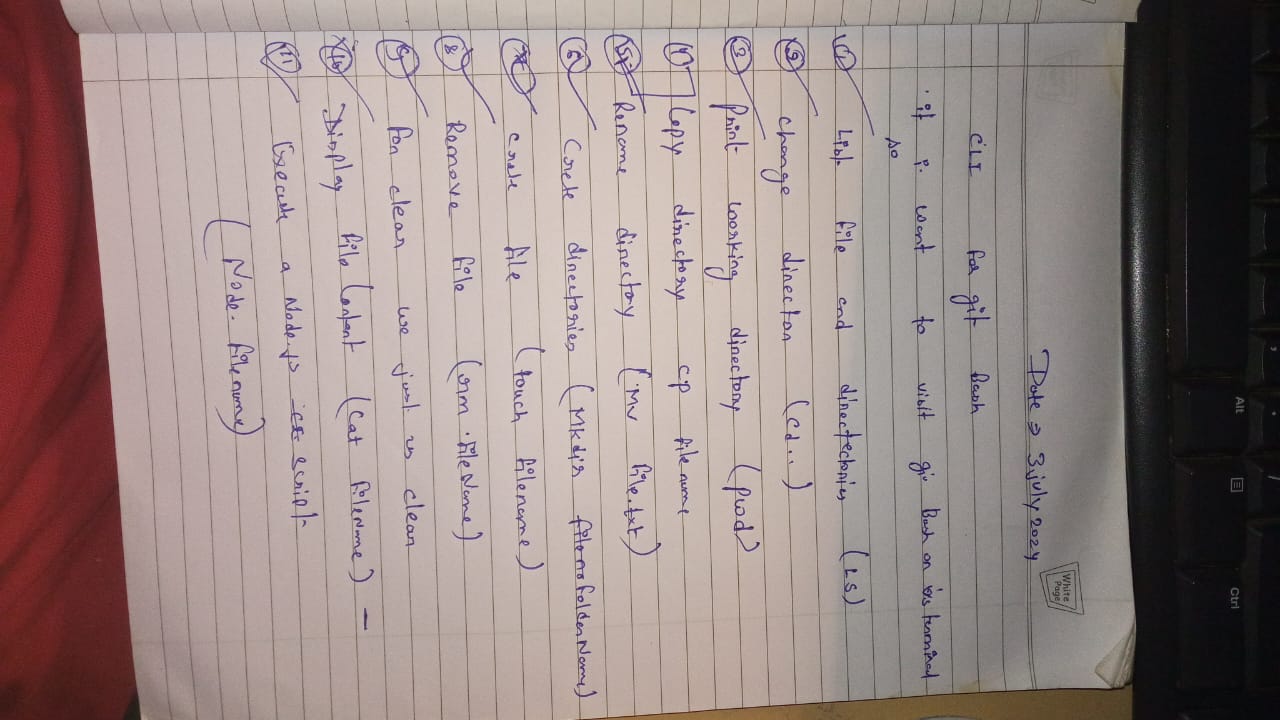 Alt
Ctrl
White
Page
Date ⇒ 3 july 2024
CLI for git Bash
· if i want to visit git Bash on terminal
so
① List file and directectories (LS)
② change directon (cd..)
③ Print working directory (pwd)
④ Copy directory cp filename
⑤ Rename directory (Mv file.txt)
⑥ Crete directories (Mkdir folderName)
⑦ Crete file (touch filename)
⑧ Remove file (rm fileName)
⑨ For clear we just us clear
⑩ Display file Content (Cat fileName) —
⑪ Execute a Node.js script
(Node. filename)